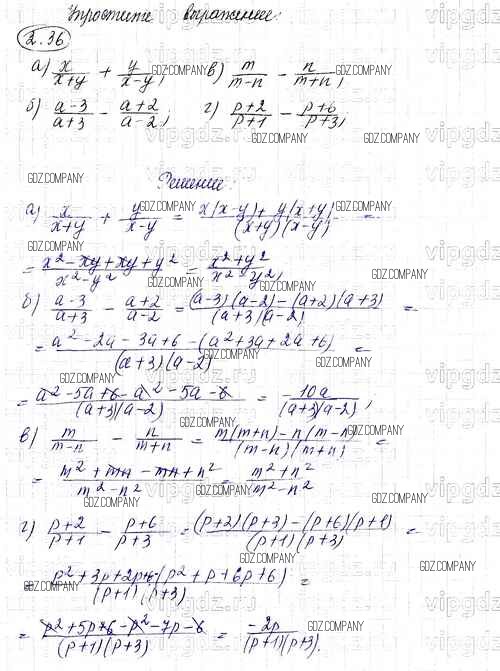 Упростите выражение:
2.36
а) x/(x+y) + y/(x-y); в) m/(m-n) - n/(m+n);
б) (a-3)/(a+3) - (a+2)/(a-2); г) (p+2)/(p+1) - (p+6)/(p+3);
Решение:
а) x/(x+y) + y/(x-y) = (x(x-y)+y(x+y))/((x+y)(x-y)) =
= (x²-xy+xy+y²)/(x²-y²) = (x²+y²)/(x²-y²);
б) (a-3)/(a+3) - (a+2)/(a-2) = ((a-3)(a-2)-(a+2)(a+3))/((a+3)(a-2)) =
= (a²-2a-3a+6-(a²+3a+2a+6))/((a+3)(a-2)) =
= (a²-5a+6-a²-5a-6)/((a+3)(a-2)) = -10a/((a+3)(a-2));
в) m/(m-n) - n/(m+n) = (m(m+n)-n(m-n))/((m-n)(m+n)) =
= (m²+mn-mn+n²)/(m²-n²) = (m²+n²)/(m²-n²)
г) (p+2)/(p+1) - (p+6)/(p+3) = ((p+2)(p+3)-(p+6)(p+1))/((p+1)(p+3)) =
= (p²+3p+2p+6-(p²+p+6p+6))/((p+1)(p+3)) =
= (p²+5p+6-p²-7p-6)/((p+1)(p+3)) = -2p/((p+1)(p+3)).